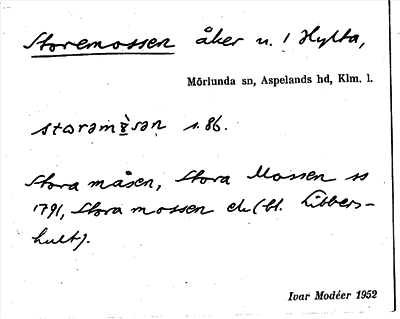 Storemossen åker u. ! Hylta,
Mörlunda sn, Aspelands hd, Klm. l.
s. 86.
Stora måsen, Stora Mossen ss
1791, Stora mossen de (bl. Libbers-
hult).
Ivar Modéer 1952